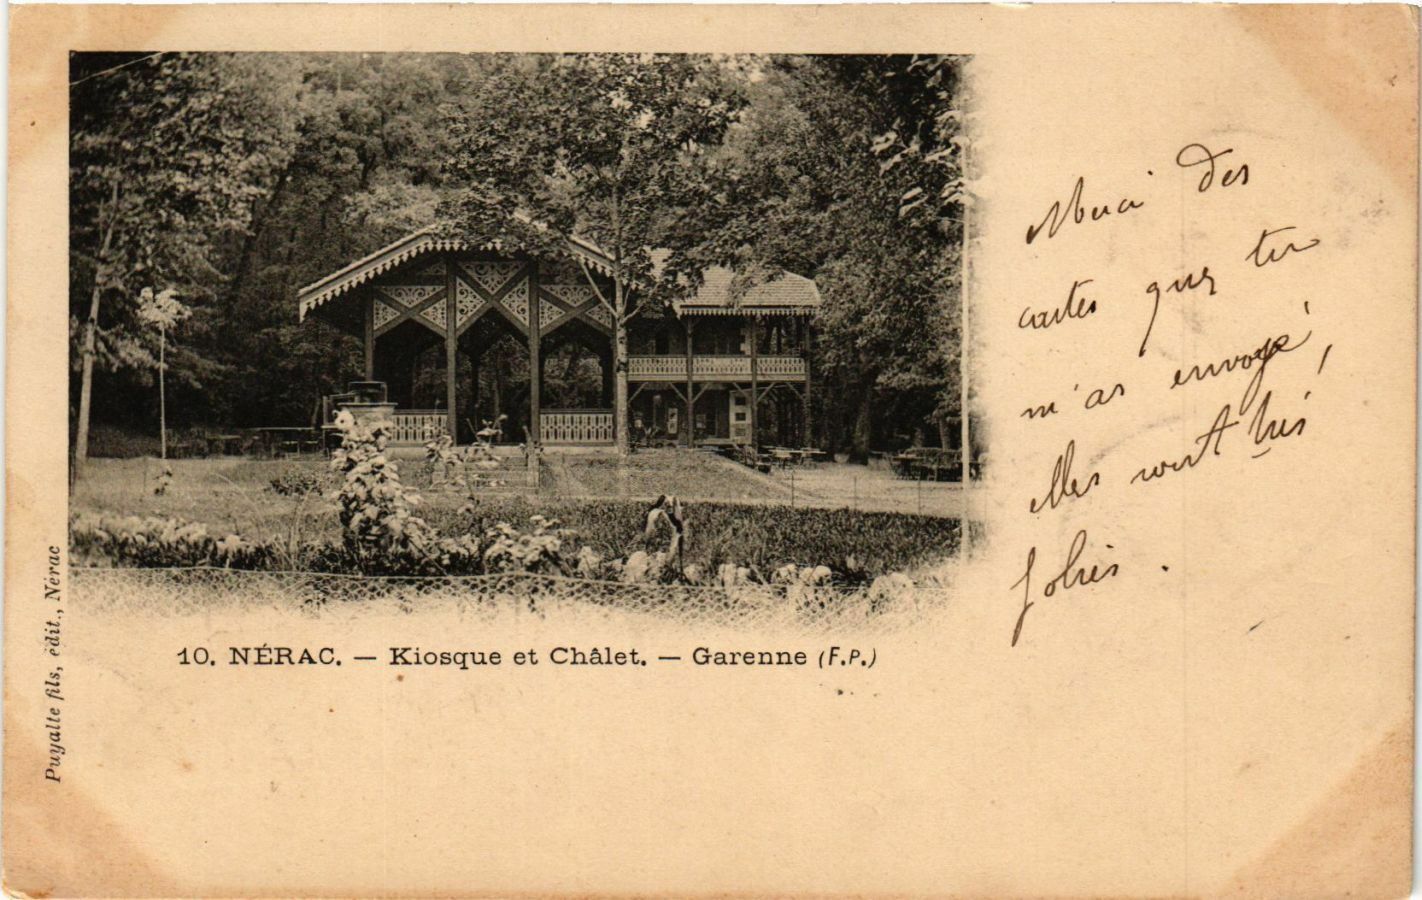 Merci des
cartes que tu
m'as envoyé,
elles sont très
jolies.
10. NÉRAC. — Kiosque et Châlet. — Garenne (F.P.)
Puyalte fils, édit., Nérac